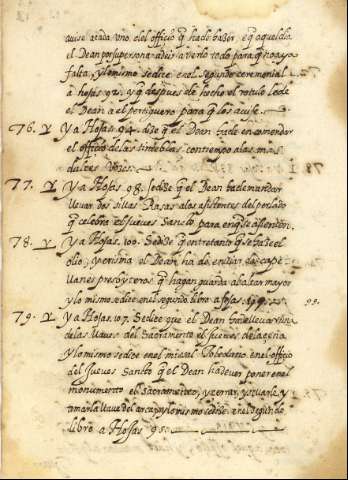 auise a cada uno el officio q̃ ha de hazer, e q̃ aquel dia
el Dean por su persona a de ir a verlo todo para q̃ no aya
falta, y lo mismo se dize en el segundo ceremonial
a hojas 92. y q̃ despues de hecho el rotulo le de
el Dean a el pertiguero para q̃ los acuse.
76. Y a Hojas 94. dize q̃ el Dean ha de encomendar
el officio de las tinieblas con tiempo a las mas
dulces vozes.
77. Y a Hojas 98. se dize q̃ el Dean ha de mandar
lleuar dos sillas Rasas a los asistentes del perlado
q̃ celebra el Jueves Sancto para en q̃ se asienten.
78. Y a Hojas. 100. Se dize q̃ entretanto q̃ se haze el
olio, y crisma el Dean ha de enviar dos cape
llanes presbyteros q̃ hagan guarda al altar mayor
y lo mismo se dize en el segundo libro a fojas 99.
79. Y a Hojas. 107. Se dize que el Dan ha de lleuar una
de las llaves del Sacramento el jueves de la çena
y lo mismo se dize en el misal Toledano en el officio
del Jueves Sancto q̃ el Dean ha de ver poner en el
monumento el Sacramento, y çerrar, y sellarle, y
tomar la llave del arca, y lo mismo se dize en el segundo
libro a Hojas 95.